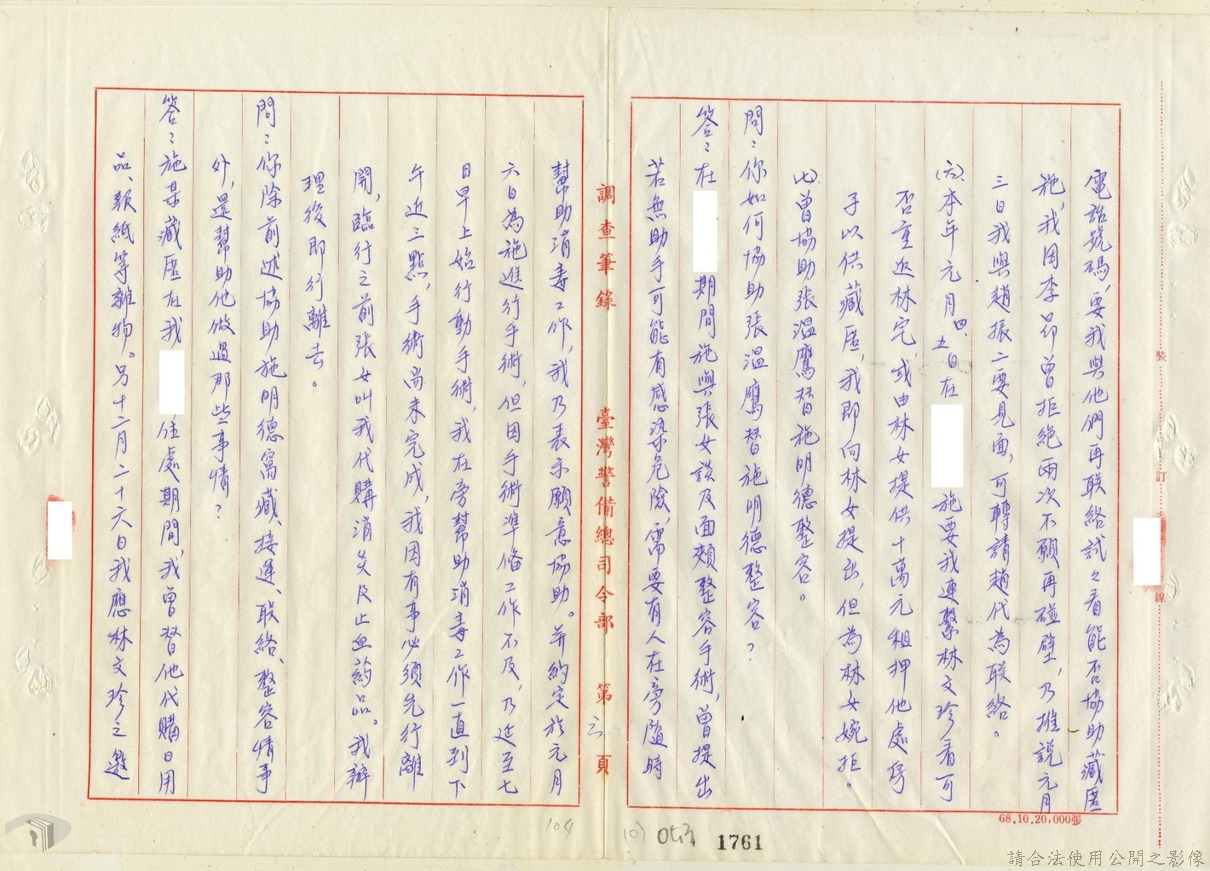 電話號碼，要我與他們再联絡試々看能否協助藏匿
施，我因李昂曾拒絕兩次不願再碰壁，乃推說元月
三日我與趙振二要見面，可轉請趙代為联絡。
㈥本年元月四、五日在　　施要我連繫林文珍看可
否重返林宅，或由林女提供十萬元租押他處房
子以供藏匿，我即向林女提出，但為林女婉拒。
㈦曾協助張温鷹替施明德整容。
問：你如何協助張温鷹替施明德整容？
答：在　　期間施與張女談及面頰整容手術，曾提出
若無助手可能有感染危險，需要有人在旁隨時
調查筆錄　臺灣警備總司令部　第三頁
幫助消毒工作，我乃表示願意協助。并約定於元月
六日為施進行手術，但因手術準备工作不及，乃延至七
日早上始行動手術，我在旁幫助消毒工作一直到下
午近三點，手術尚未完成，我因有事必須先行離
開，臨行之前張女叫我代購消炎及止血葯品。我辦
理後即行離去。
問：你除前述協助施明德窩藏、接運、联絡、整容情事
外，還幫助他做過那些事情？
答：施某藏匿在我　　住處期間，我曾替他代購日用
品、報紙等雜物。另十二月二十六日我應林文珍之邀
裝　訂　線
68.10.20,000張
104
1761
請合法使用公開之影像